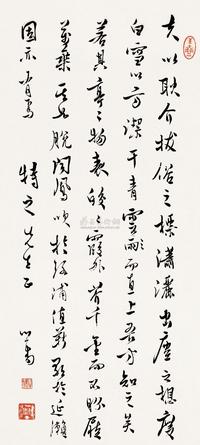 夫以耿介拔俗之標瀟灑出塵之想度
白雪以方潔干青雲而直上吾方知之矣
若其亭〻物表皎〻霞外芥千金而不眄屣
萬乘其如脫聞鳳吹於洛浦值薪歌於延瀨
固亦有焉
特之先生正
心畬